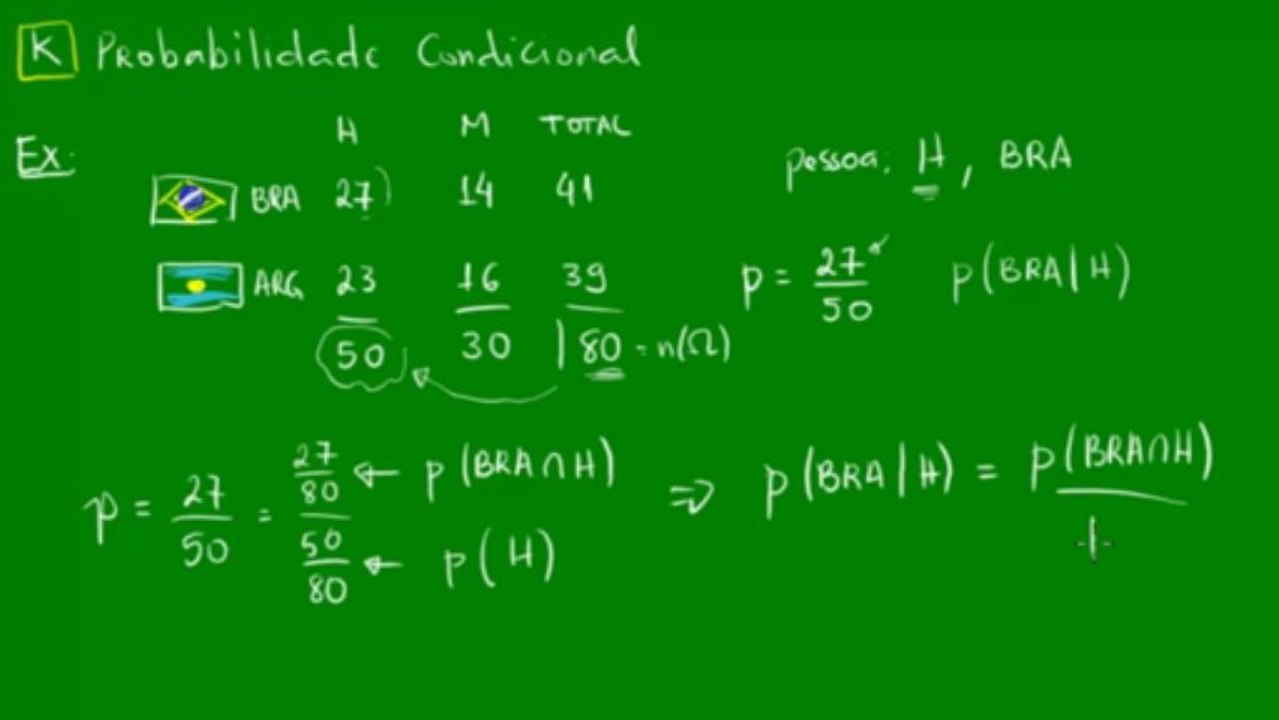 K Probabilidade Condicional
Ex:
H M TOTAL
BRA 27 14 41
ARG 23 16 39
50 30 80 = n(Ω)
pessoa: H, BRA
p = 27/50 p(BRA|H)
p = 27/50 = 27/80 ← p(BRA∩H)
50/80 ← p(H)
⇒ p(BRA|H) = p(BRA∩H)